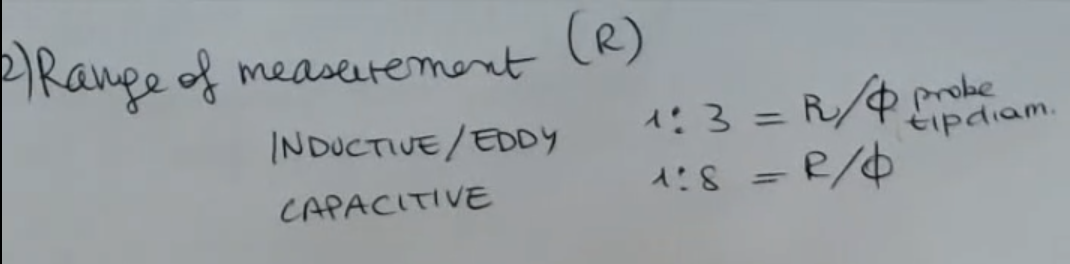 2) Range of measurement (R)
INDUCTIVE/EDDY 1:3 = R/Φ probe tip diam.
CAPACITIVE 1:8 = R/Φ